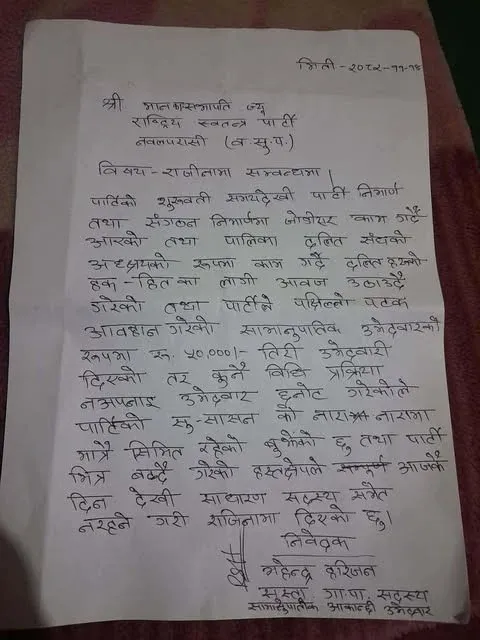 मिती - २०८२-११-१४
श्री मान का. सभापति ज्यू
राष्ट्रिय स्वतन्त्र पार्टी
नवलपरासी (ब.सु.प.)
विषय - राजीनामा सम्बन्धमा।
पार्टिको शुरुवती समयदेखी पार्टी निर्माण
तथा संगठन निर्माणमा जोडीएर काम गर्दै
आएको तथा पालिका दलित संघको
अध्यक्षको रूपमा काम गर्दै दलित हरुको
हक-हित का लागी आवज उठाउदै
गरेको तथा पार्टीले पछिल्लो पटक
आवहान गरेको सामानुपातिक उमेदवारको
रूपमा रू. ५०,०००/- तिरी उमेदवारी
दिएको तर कुनै विधि प्रक्रिया
नअपनाइ उमेदवार छनोट गरेकोले
पार्टिको सु-सासन को नारा नारामा
मात्रै सिमित रहेको बुझेको छु तथा पार्टी
भित्र बढ्दै गरेको हस्तक्षेपले सम्पूर्ण आजकै
दिन देखी साधारण सदस्य समेत
नरहने गरी राजिनामा दिएको छु।
निवेदक
महेन्द्र हरिजन
सुस्ता गा.पा. सदस्य
सामानुपातीक आकांक्षी उमेदवार